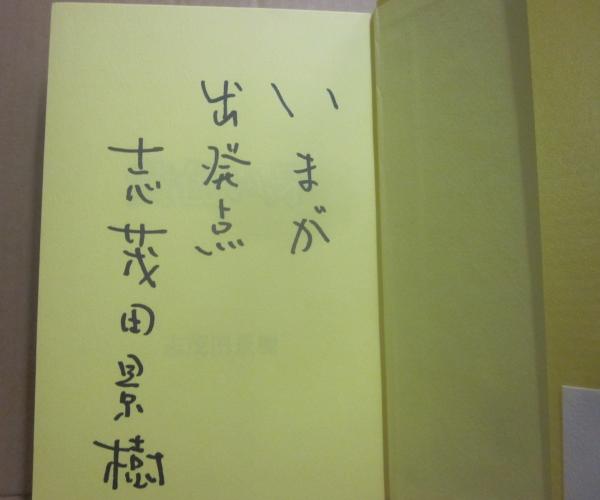 いまが
出発点
志茂田景樹